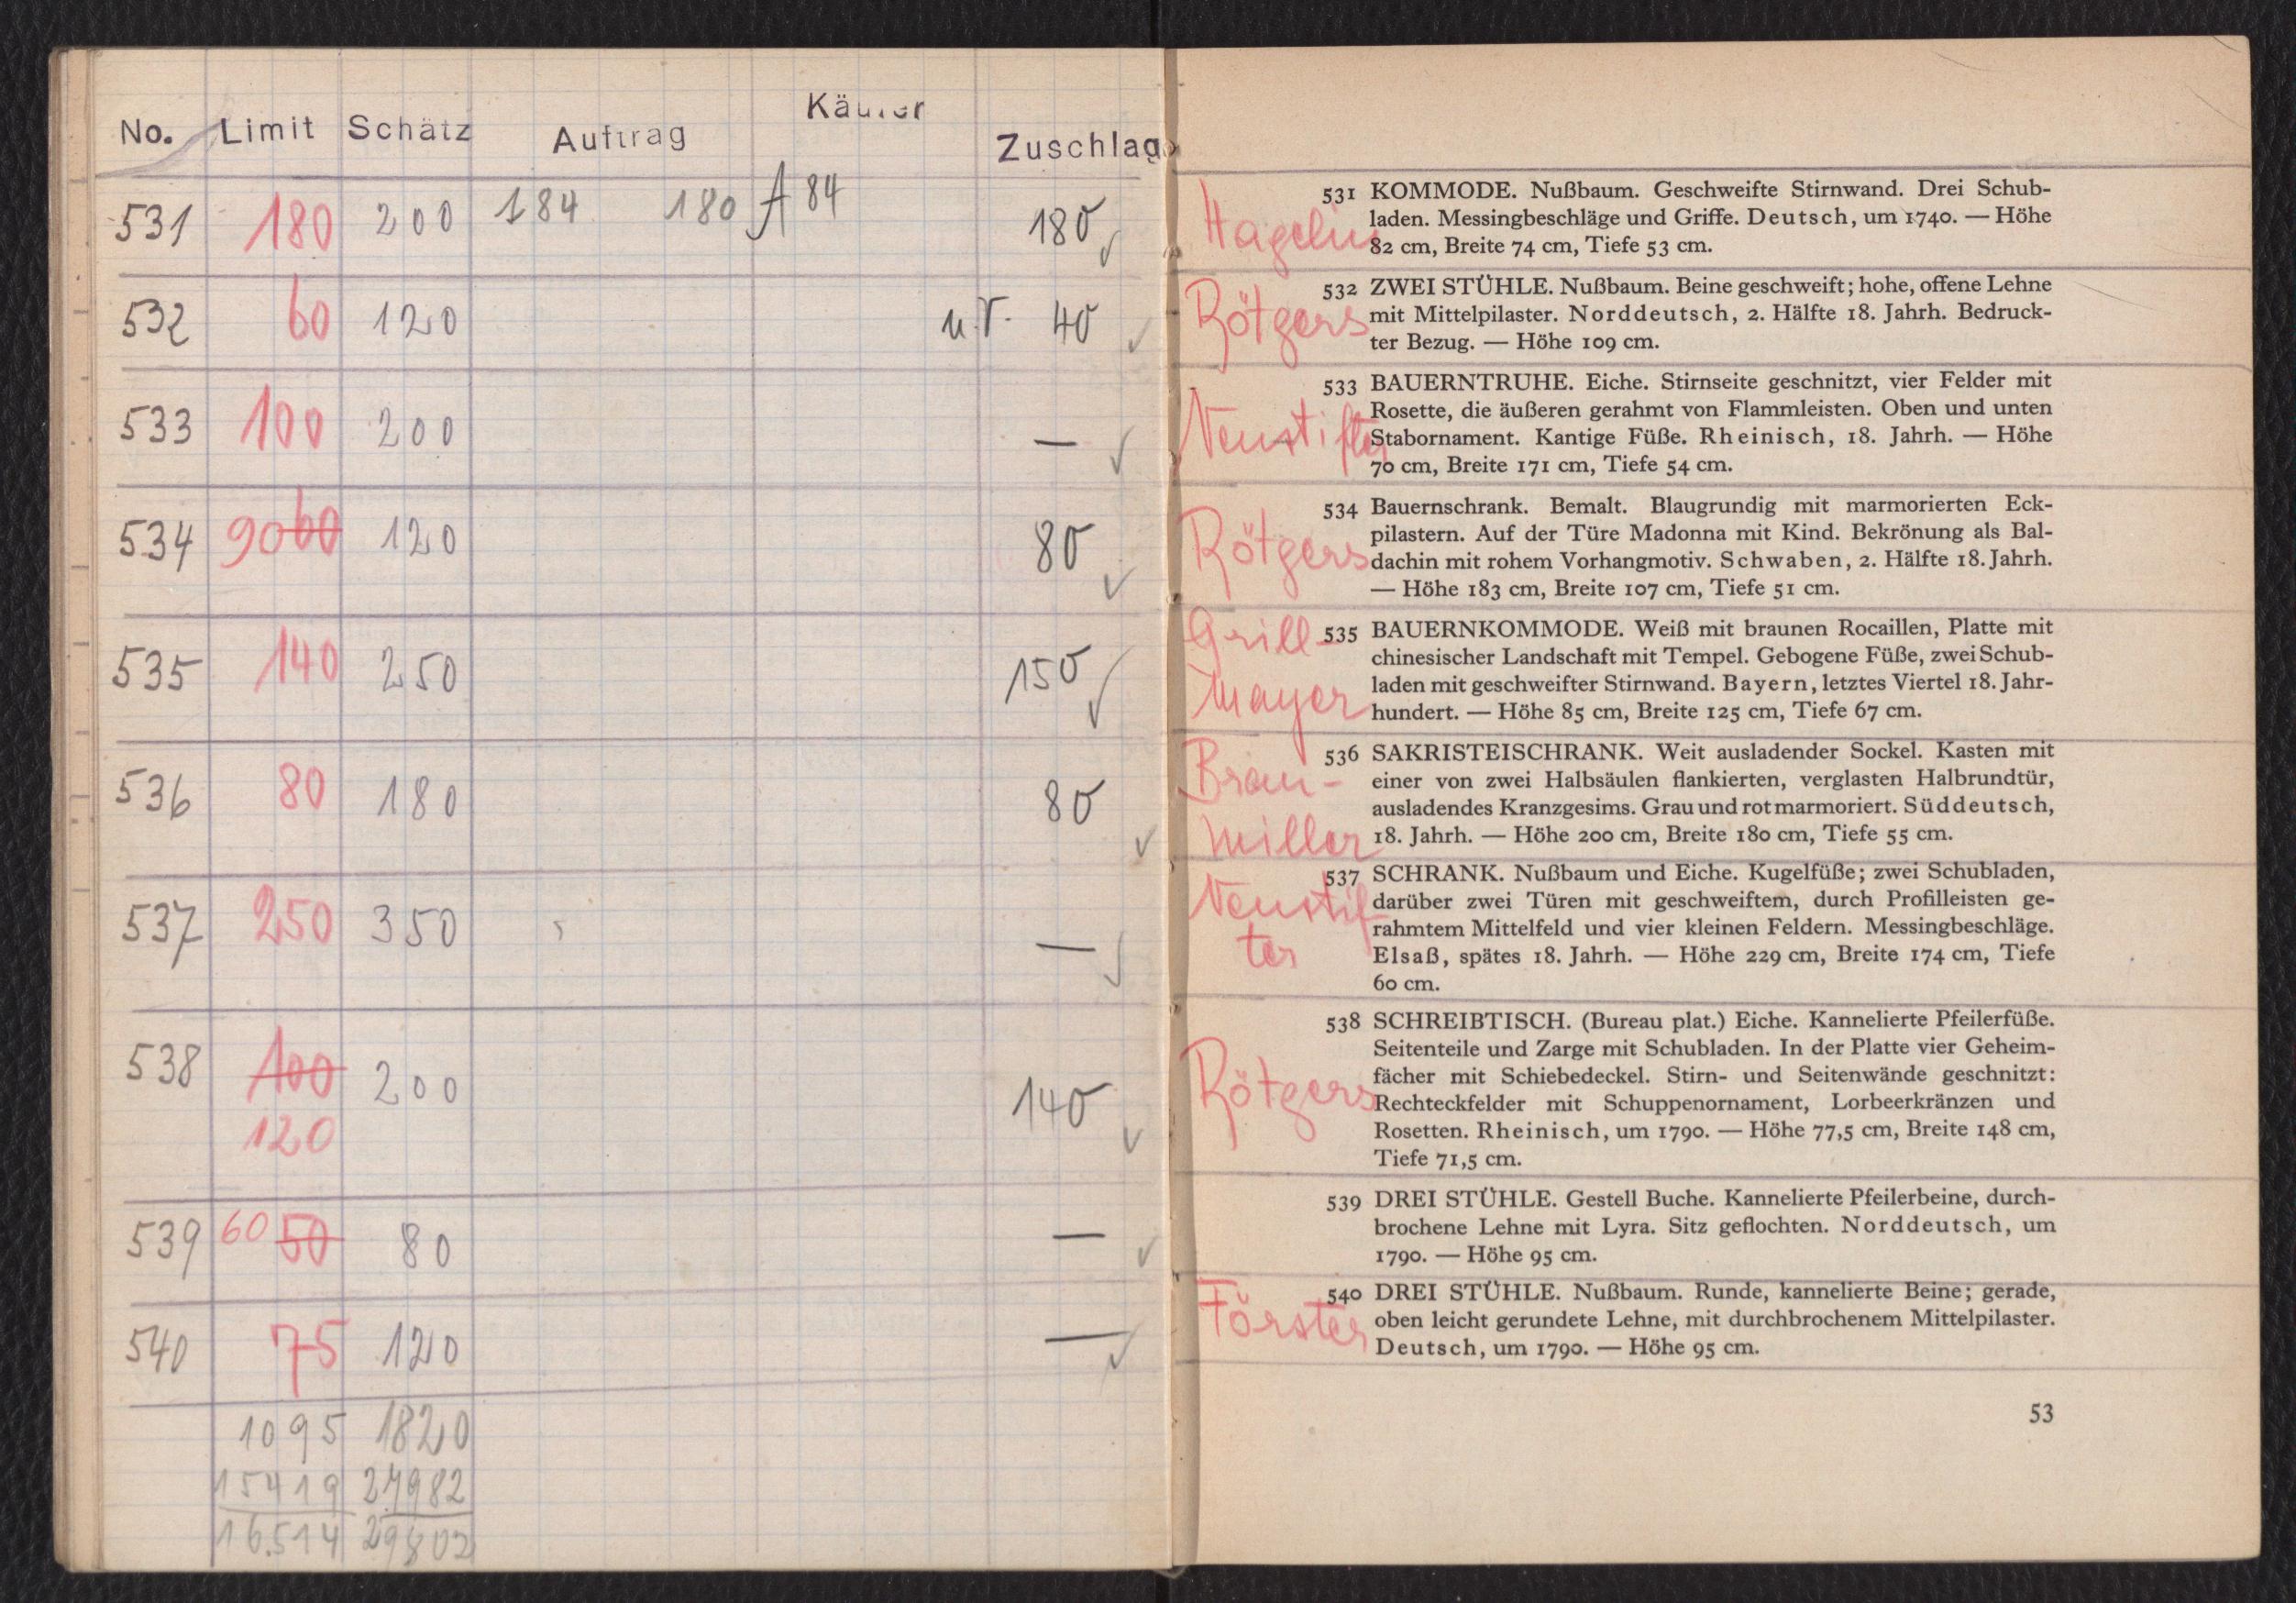 No. Limit Schätz Auftrag Käufer Zuschlag
531 180 200 184 180 A 84 180 ✓
532 60 120 u.V. 40 ✓
533 100 200 — ✓
534 90 60 120 80 ✓
535 140 250 150 ✓
536 80 180 80 ✓
537 250 350 — ✓
538 100 200 140 ✓
120
539 60 50 80 — ✓
540 75 120 — ✓
1095 1820
15419 27982
16.514 29802
Hagelin
531 KOMMODE. Nußbaum. Geschweifte Stirnwand. Drei Schub-
laden. Messingbeschläge und Griffe. Deutsch, um 1740. — Höhe
82 cm, Breite 74 cm, Tiefe 53 cm.
Rötgers
532 ZWEI STÜHLE. Nußbaum. Beine geschweift; hohe, offene Lehne
mit Mittelpilaster. Norddeutsch, 2. Hälfte 18. Jahrh. Bedruck-
ter Bezug. — Höhe 109 cm.
Neustifter
533 BAUERNTRUHE. Eiche. Stirnseite geschnitzt, vier Felder mit
Rosette, die äußeren gerahmt von Flammleisten. Oben und unten
Stabornament. Kantige Füße. Rheinisch, 18. Jahrh. — Höhe
70 cm, Breite 171 cm, Tiefe 54 cm.
Rötgers
534 Bauernschrank. Bemalt. Blaugrundig mit marmorierten Eck-
pilastern. Auf der Türe Madonna mit Kind. Bekrönung als Bal-
dachin mit rohem Vorhangmotiv. Schwaben, 2. Hälfte 18. Jahrh.
— Höhe 183 cm, Breite 107 cm, Tiefe 51 cm.
Grill-
mayer
535 BAUERNKOMMODE. Weiß mit braunen Rocaillen, Platte mit
chinesischer Landschaft mit Tempel. Gebogene Füße, zwei Schub-
laden mit geschweifter Stirnwand. Bayern, letztes Viertel 18. Jahr-
hundert. — Höhe 85 cm, Breite 125 cm, Tiefe 67 cm.
Brau-
miller
536 SAKRISTEISCHRANK. Weit ausladender Sockel. Kasten mit
einer von zwei Halbsäulen flankierten, verglasten Halbrundtür,
ausladendes Kranzgesims. Grau und rot marmoriert. Süddeutsch,
18. Jahrh. — Höhe 200 cm, Breite 180 cm, Tiefe 55 cm.
Neustif-
ter
537 SCHRANK. Nußbaum und Eiche. Kugelfüße; zwei Schubladen,
darüber zwei Türen mit geschweiftem, durch Profilleisten ge-
rahmtem Mittelfeld und vier kleinen Feldern. Messingbeschläge.
Elsaß, spätes 18. Jahrh. — Höhe 229 cm, Breite 174 cm, Tiefe
60 cm.
Rötgers
538 SCHREIBTISCH. (Bureau plat.) Eiche. Kannelierte Pfeilerfüße.
Seitenteile und Zarge mit Schubladen. In der Platte vier Geheim-
fächer mit Schiebedeckel. Stirn- und Seitenwände geschnitzt:
Rechteckfelder mit Schuppenornament, Lorbeerkränzen und
Rosetten. Rheinisch, um 1790. — Höhe 77,5 cm, Breite 148 cm,
Tiefe 71,5 cm.
539 DREI STÜHLE. Gestell Buche. Kannelierte Pfeilerbeine, durch-
brochene Lehne mit Lyra. Sitz geflochten. Norddeutsch, um
1790. — Höhe 95 cm.
Förster
540 DREI STÜHLE. Nußbaum. Runde, kannelierte Beine; gerade,
oben leicht gerundete Lehne, mit durchbrochenem Mittelpilaster.
Deutsch, um 1790. — Höhe 95 cm.
53